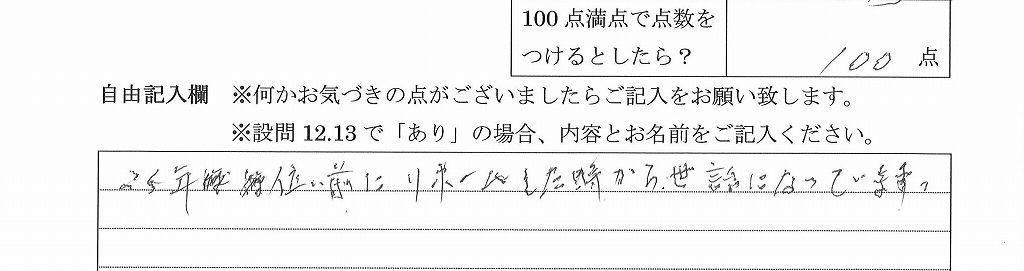 100点満点で点数を
つけるとしたら？
100 点
自由記入欄 ※何かお気づきの点がございましたらご記入をお願い致します。
※設問12.13で「あり」の場合、内容とお名前をご記入ください。
25年 位い前にリホームした時から、世話になっています。